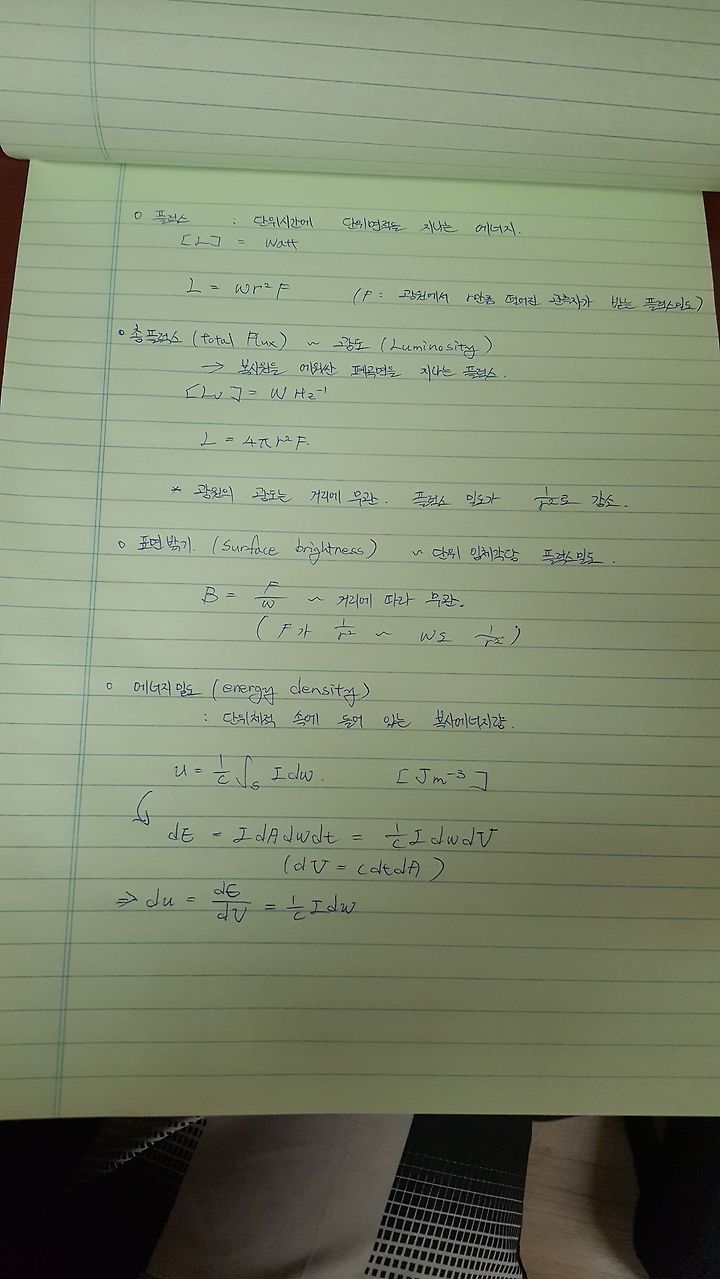 o 플럭스 : 단위시간에 단위면적을 지나는 에너지.
[L] = Watt
L = ωr²F (F: 광원에서 r만큼 떨어진 관측자가 받는 플럭스밀도)
o 총플럭스 (total Flux) ~ 광도 (Luminosity)
→ 복사원을 에워싼 폐곡면을 지나는 플럭스.
[Lν] = W Hz⁻¹
L = 4πr²F.
* 광원의 광도는 거리에 무관. 플럭스 밀도가 1/r²로 감소.
o 표면밝기. (Surface brightness) ~ 단위 입체각당 플럭스밀도.
B = F/ω ~ 거리에 따라 무관.
(F가 1/r² ~ ω도 1/r²)
o 에너지밀도 (energy density)
: 단위체적 속에 들어 있는 복사에너지량.
u = 1/c ∫s I dω. [Jm⁻³]
dE = I dA dω dt = 1/c I dω dV
(dV = c dt dA)
⇒ du = dE/dV = 1/c I dω